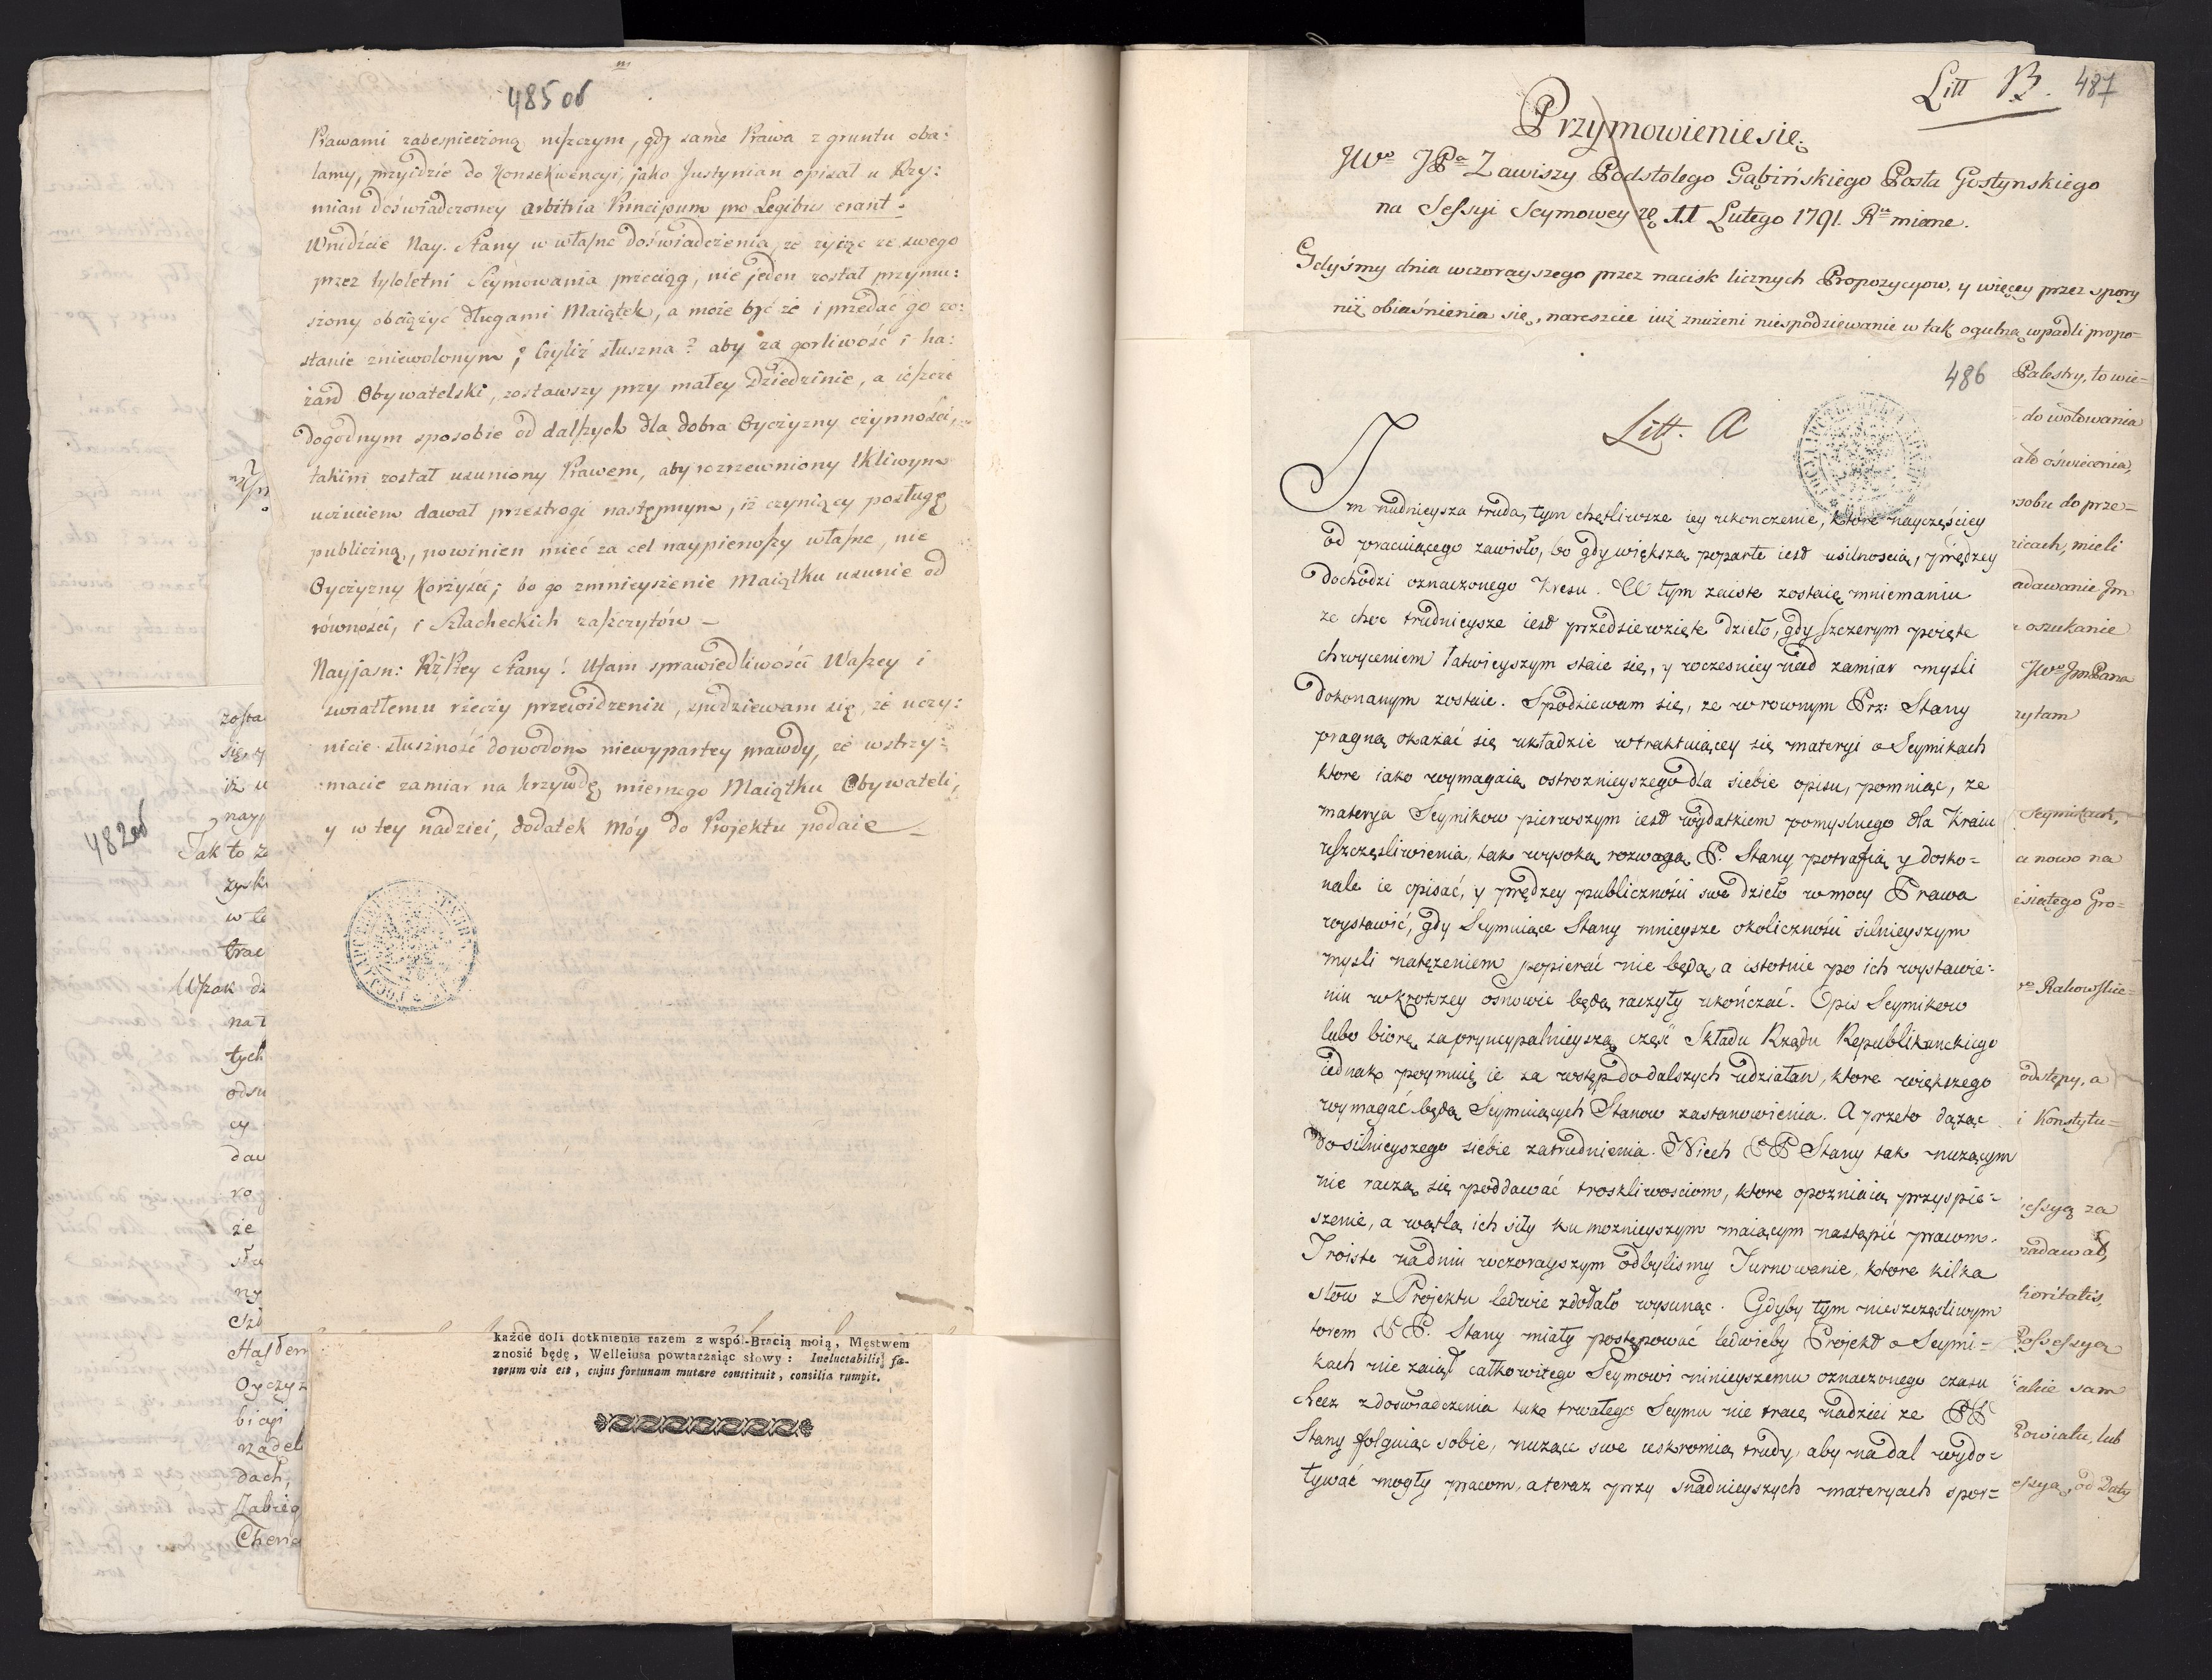 485 об
Prawami zabespieczoną niszczym, gdy same Prawa z gruntu oba:
lamy, przyidzie do Konsekwencyi, jako Justynian opisał u Rzy:
mian doświadczoney arbitria Principum pro Legibus erant.
Wnidzcie Nay. Stany w własne doświadczenia, że żyiąc ze swego
przez tyloletni Seymowania przeciąg, nie jeden został przymu:
szony obciążyć długami Maiątek, a może być że i przedać go zo:
stanie zniewolonym; Czyliż słuszna? aby za gorliwość i ha:
zard Obywatelski, zostawszy przy małey Dziedzinie, a ieszcze
dogodnym sposobie od dalszych dla dobra Oyczyzny czynności,
takim został usuniony Prawem, aby rozrzewniony tkliwym
uczuciem dawał przestrogi następnym, iż czyniący posługę
publiczną, powinien mieć za cel naypierwszy własne, nie
Oyczyzny Korzyści; bo go zmnieyszenie Maiątku usunie od
równości, i Szlacheckich zaszczytów –
Nayjasn: Rz'Ptey Stany! Ufam sprawiedliwości Waszey i
swiatłemu rzeczy przewidzeniu, spodziewam się, że uczy:
nicie słuszność dowodom niewypartey prawdy, że wstrzy:
macie zamiar na krzywdę miernego Maiątku Obywateli,
y w tey nadziei, dodatek móy do Projektu podaię –
482 об
zosta
się
iż u
nayp
Tak to że
zysk
w te
trac
Wszak dz
na t
tych
odsu
cy
daw
ro
że
słu
ny
Oyczyz
nadel
dach,
Zabieg
każde doli dotknienie razem z współ-Bracią moią, Męstwem
znosić będę, Welleiusa powtarzaiąc słowy: Ineluctabilis fa-
torum vis est, cujus fortunam mutare constituit, consilia rumpit.
Litt B. 487
Przymowienie się
JWo JPa Zawiszy Podstolego Gąbińskiego Posła Gostynskiego
na Sessyi Seymowey ze 11 Lutego 1791. Rku miane.
Gdyśmy dnia wczorayszego przez nacisk licznych Propozycyow, y więcey przez spory
niż obiaśnienia się, nareszcie iuż znużeni niespodziewanie w tak ogulną wpadli propo=
486
Litt. A
Im nudnieysza truda, tym chętliwsze iey ukonczenie, ktore nayczęściey
od pracuiącego zawisło, bo gdy większą poparte iest usilnoscią, prędzey
dochodzi oznaczonego Kresu. W tym zaiste zostaię mniemaniu
ze choc trudnieysze iest przedsiewzięte dzieło, gdy szczerym poięte
chwyceniem łatwieyszym staie się, y wczesniey nad zamiar mysli
dokonanym zostaie. Spodziewam się, ze w rownym Prz: Stany
pragną okazać się układzie w traktuiącey się materyi o Seymikach
ktore iako wymagaią ostroznieyszego dla siebie opisu, pomniąc, ze
materya Seymikow pierwszym iest wydatkiem pomyslnego dla Kraiu
uszczęsliwienia, tak wysoką rozwagą P. Stany potrafią y dosko=
nale ie opisać, y prędzey publiczności swe dzieło w mocy Prawa
wystawić, gdy Seymuiące Stany mnieysze okoliczności silnieyszym
mysli natęzeniem popierać nie będą, a istotnie po ich wystawie=
niu w krotszey osnowie będą raczyły ukończać. Opis Seymikow
lubo biorę za pryncypalnieyszą część Składu Rządu Republikanckiego
iednak poymuię ie za wstęp do dalszych udziałan, ktore większego
wymagać będą Seymuiących Stanow zastanowienia. A przeto dążąc
do silnieyszego siebie zatrudnienia. Niech PP Stany tak nuzącym
nie raczą się poddawać troskliwosciom, ktore opozniaią przyspie=
szenie, a wątlą ich siły ku moznieyszym maiącym nastąpić prawom.
Troiste na dniu wczorayszym odbylismy Turnowanie, ktore kilka
słow z Projektu ledwie zdołało wysunąc. Gdyby tym nieszczęsliwym
torem PP. Stany miały postępować ledwieby Projekt o Seymi=
kach nie zaiął całkowitego Seymowi ninieyszemu oznaczonego czasu
Lecz z doswiadczenia tak trwałego Seymu nie tracę nadziei ze PP
Stany folguiąc sobie, nuzące swe uskromią trudy, aby na dal wydo=
ływać mogły pracom, a teraz przy snadnieyszych materyach spor=
Palestry, to wie=
do wotowania
ało oświecenia,
osobu do prze=
nicach, mieli
adawanie Im
oszukanie
JWo Jm Pana
zytam
Seymikach,
a nowo na
esiątego Gro=
Rakowskie=
odstępy, a
i Konstytu=
essyą za
nadawał,
rioritatis,
Possessya
akie sam
Powiatu, lub
essya, od Daty